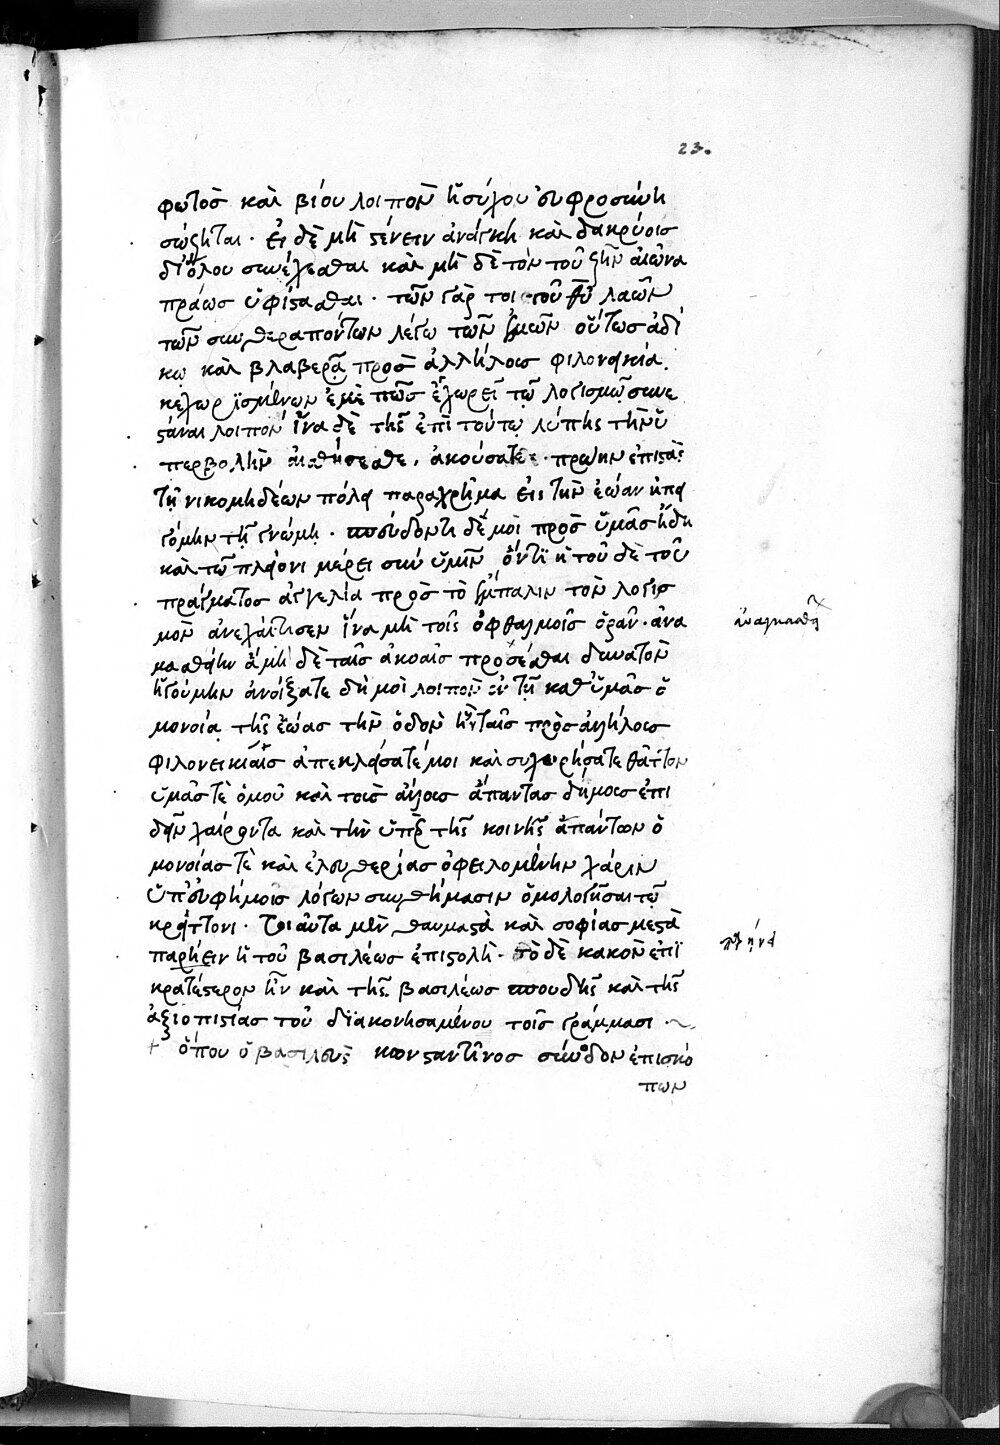 23.
φωτὸς καὶ βίου λοιπὸν ἡσύχου εὐφροσύνη
σώζηται· εἰ δὲ μὴ στένειν ἀνάγκη καὶ δακρύοις
δι' ὅλου συνέχεσθαι καὶ μὴ δὲ τὸν τοῦ ζῆν αἰῶνα
πράως ὑφίστασθαι· τῶν γάρ τοι τοῦ θυ λαῶν
τῶν συνθεραπόντων λέγω τῶν ἐμῶν οὕτως ἀδί
κῳ καὶ βλαβερᾷ πρὸς ἀλλήλους φιλονεικίᾳ
κεχωρϊσμένων ἐμὲ πῶς ἐγχωρεῖ τῷ λογισμῷ συνε
στάναι λοιπόν ἵνα δὲ τῆς ἐπὶ τούτῳ λύπης τὴν ὑ
περβολὴν αἰσθήσεσθε, ἀκούσατε· πρώην ἐπιστὰς
τῇ νικομηδέων πόλει παραχρῆμα εἰς τὴν ἑώαν ἠπει
γόμην τῇ γνώμῃ· σπεύδοντι δέ μοὶ πρὸς ὑμᾶς ἤδη
καὶ τῷ πλείονι μέρει σὺν ὑμῖν ὄντϊ ἡ τοῦ δὲ τοῦ
πράγματος ἀγγελία πρὸς τὸ ἔμπαλιν τὸν λογισ
μὸν ἀνεχαίτισεν ἵνα μὴ τοῖς ὀφθαλμοῖς ὁρᾶν ἀνα
ἀναγκασθεί
κασθείην ἃ μὴ δὲ ταῖς ἀκοαῖς προσέσθαι δυνατὸν
ἡγούμην ἀνοίξατε δή μοὶ λοιπὸν ἐν τῇ καθ' ὑμᾶς ὁ
μονοίᾳ τῆς ἑώας τὴν ὁδὸν ἣν ταῖς πρὸς ἀλλήλους
φιλονεικίαις ἀπεκλείσατέ μοι καὶ συγχωρήσατε θᾶττον
ὑμᾶς τὲ ὁμοῦ καὶ τοὺς ἄλλους ἅπαντας δήμους ἐπι
δεῖν χαίροντα καὶ τὴν ὑπὲρ τῆς κοινῆς ἁπάντων ὁ
μονοίας τὲ καὶ ἐλευθερίας ὀφειλομένην χάριν
ὑπ' εὐφήμοις λόγων συνθήμασιν ὁμολογῆσαι τῷ
κρείττονι· Τοιαῦτα μὲν θαυμαστὰ καὶ σοφίας μεστὰ
παρῄει νῆ τοῦ βασιλέως ἐπιστολὴ· τὸ δὲ κακὸν ἐπϊ
κρατέστερον ἦν καὶ τῆς βασιλέως σπουδῆς καὶ τῆς
ἀξιοπιστίας τοῦ δϊακονησαμένου τοῖς γράμμασι·~
+ ὅπου ὁ βασιλεὺς κωνσταντῖνος σύνοδον ἐπισκό
πων